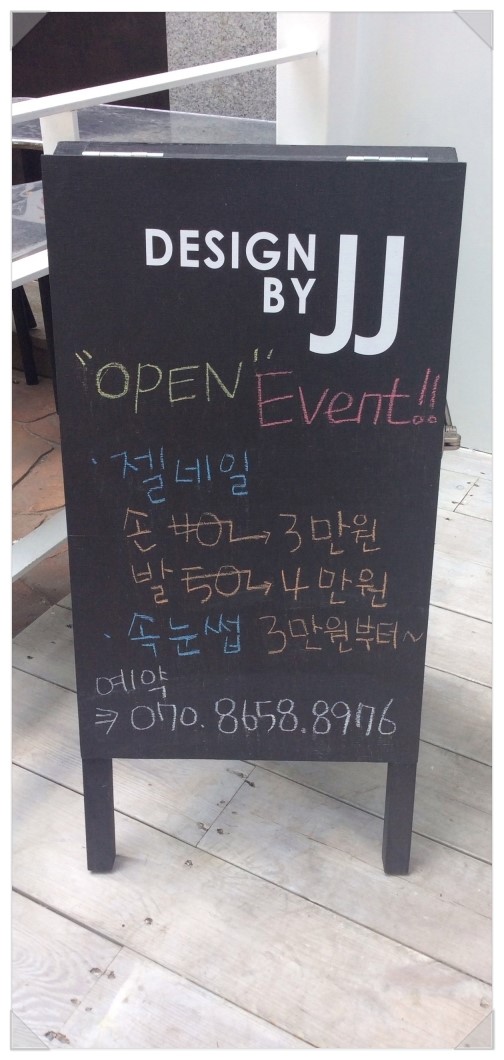 DESIGN
BY JJ
"OPEN" Event!!
· 젤네일
손 40→ 3만원
발 50→ 4만원
· 속눈썹 3만원부터~
예약
⇒ 070. 8658. 8976